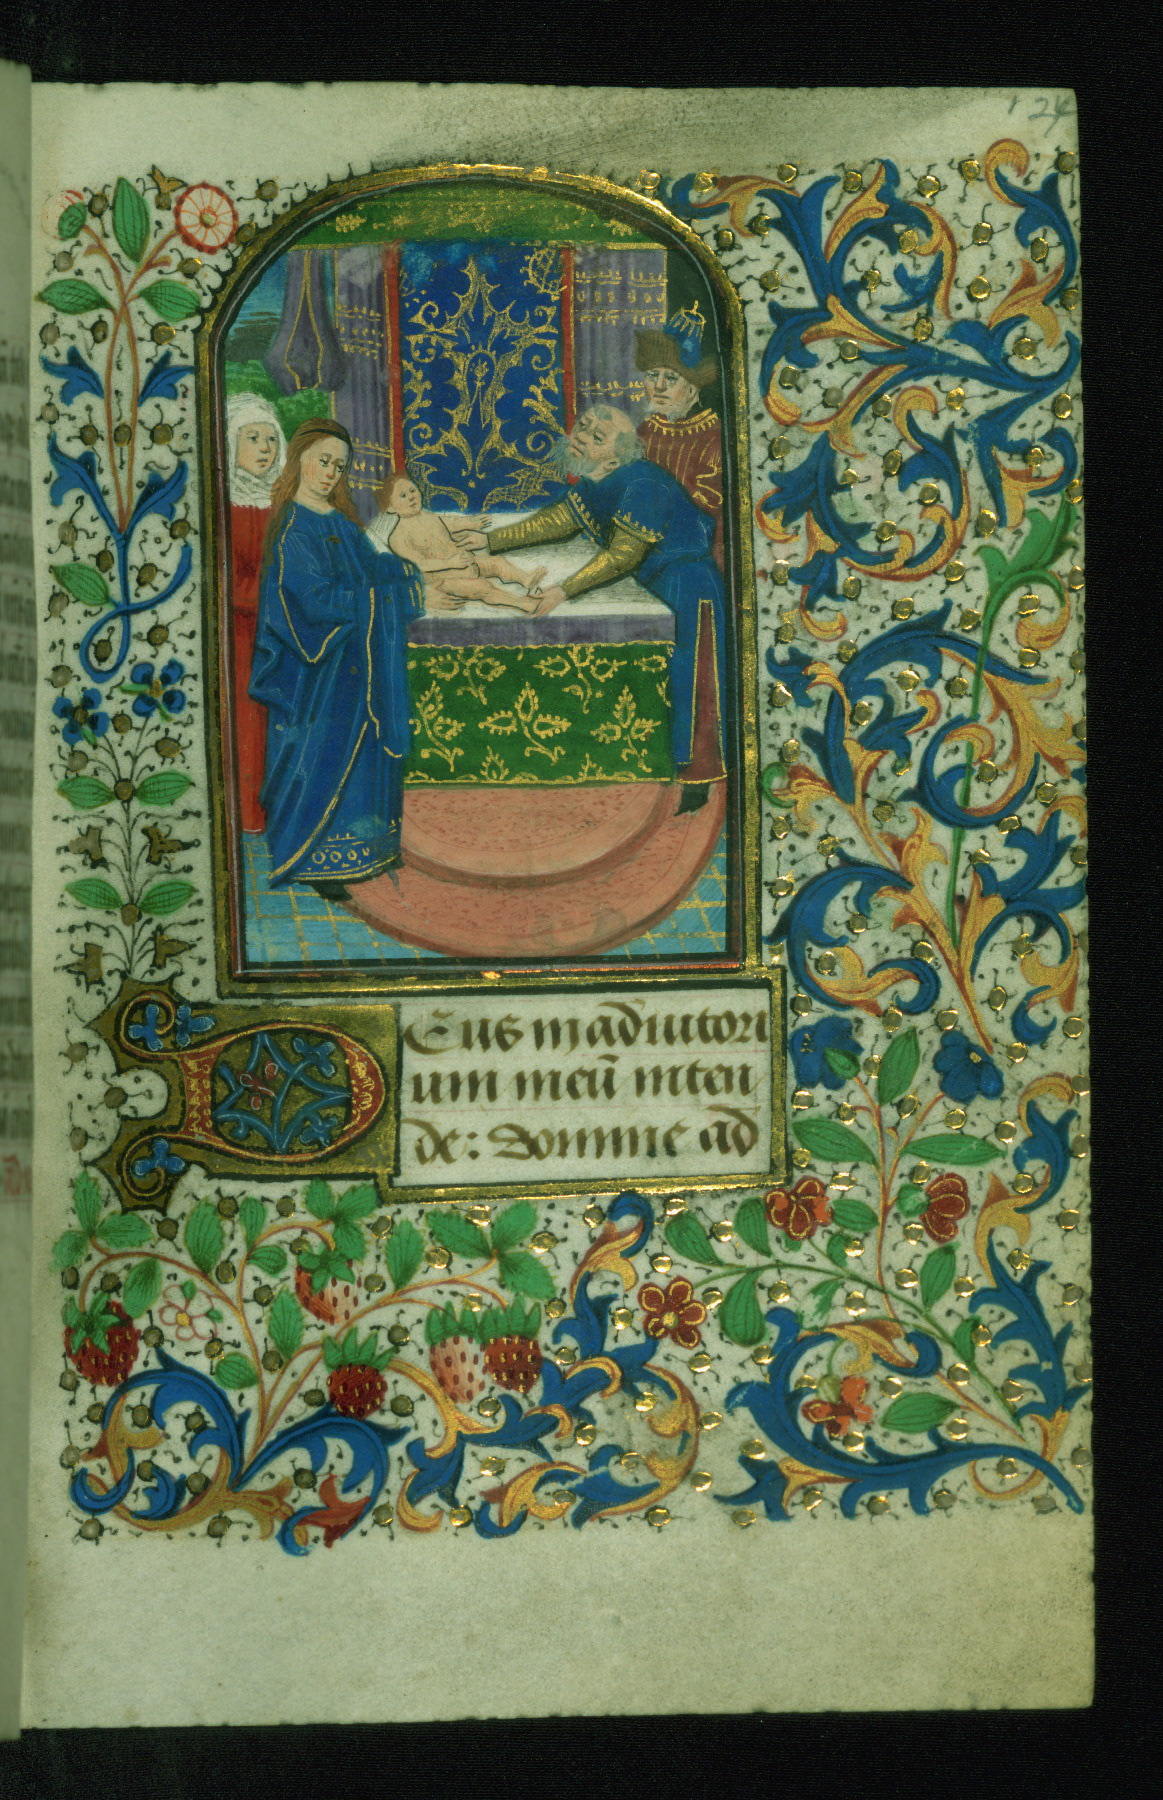 124
Deus in adiutori
um meū inten
de: Domine ad